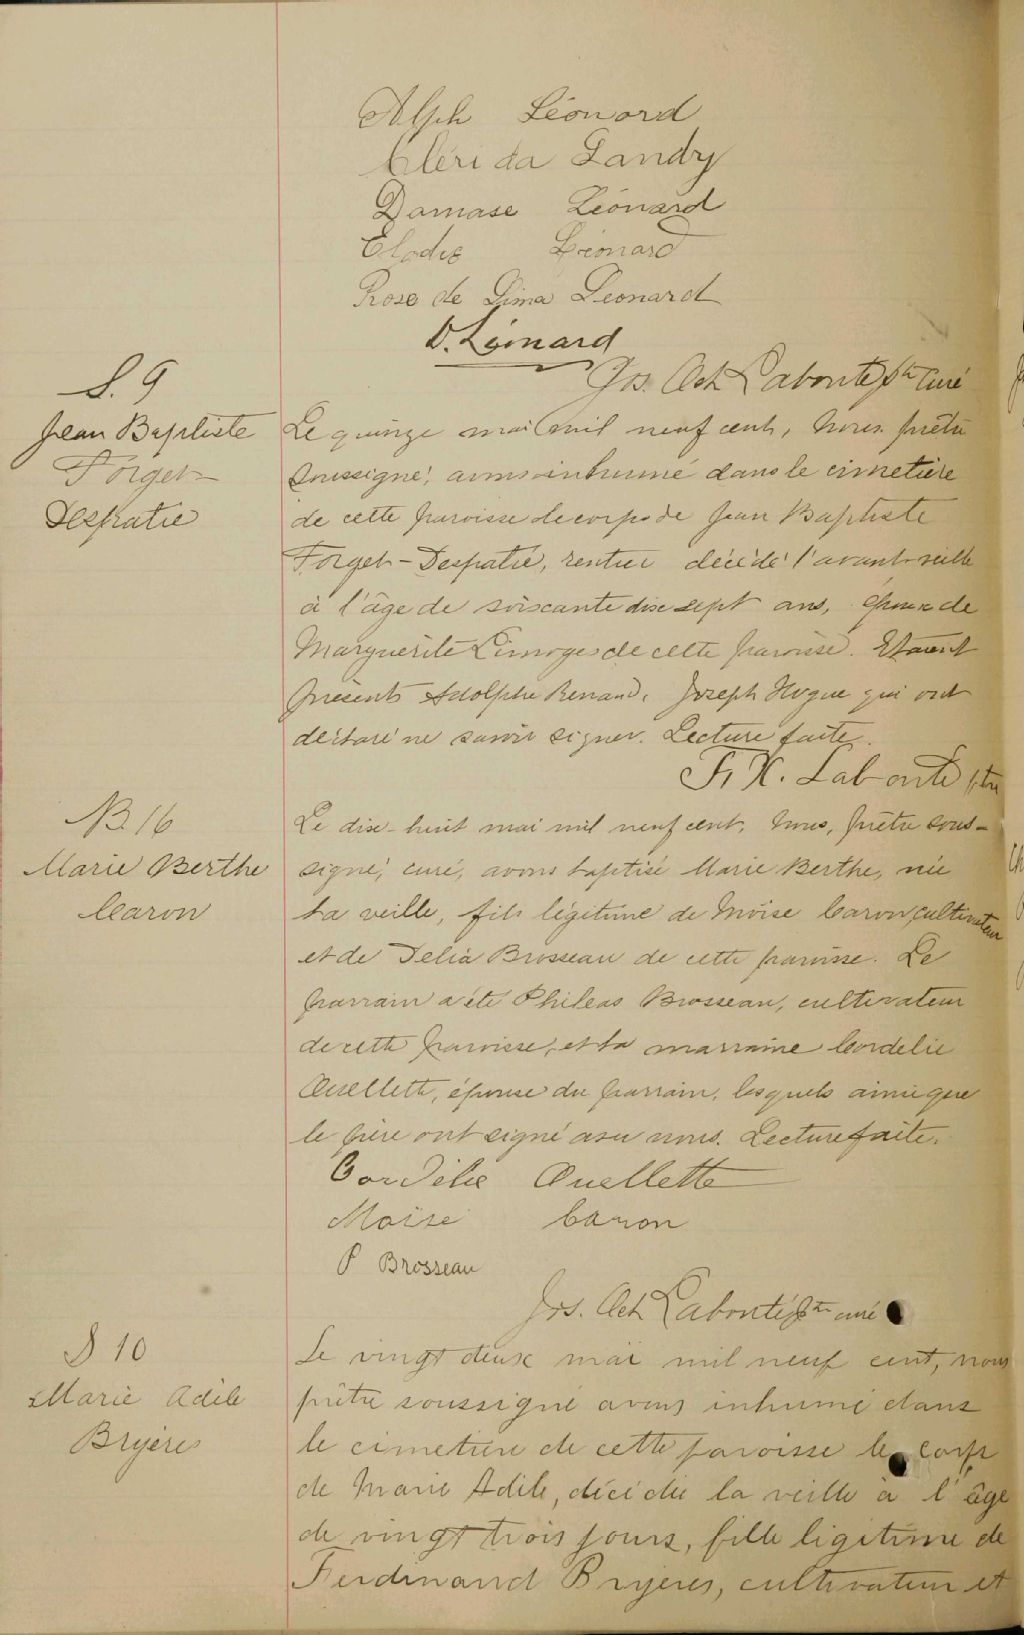 Alph Léonard
Clérida Landry
Damase Léonard
Elodie Léonard
Rose de Lima Léonard
D. Léonard
Jos. Oct Labonté ptre curé
S. 9
Jean Baptiste
Forget
Despatie
Le quinze mai mil neuf cent, nous prêtre
soussigné, avons inhumé dans le cimetière
de cette paroisse le corps de Jean Baptiste
Forget-Despatie, rentier décédé l'avant-veille
à l'âge de soixante dix sept ans, époux de
Marguerite Limoges de cette paroisse. Etaient
présents Adolphe Renaud, Joseph Hogue qui ont
déclaré ne savoir signer. Lecture faite.
F. X. Labonté ptre
B. 16
Marie Berthe
Caron
Le dix-huit mai mil neuf cent, nous, prêtre sous-
signé, curé, avons baptisé Marie Berthe, née
la veille, fils légitime de Moïse Caron, cultivateur
et de Delia Brosseau de cette paroisse. Le
parrain a été Philéas Brosseau, cultivateur
de cette paroisse, et la marraine Cordelie
Ouellette, épouse du parrain, lesquels ainsi que
le père ont signé avec nous. Lecture faite.
Cordélie Ouellette
Moïse Caron
P Brosseau
Jos. Oct Labonté ptre curé
S 10
Marie Adile
Bryères
Le vingt deux mai mil neuf cent, nous
prêtre soussigné avons inhumé dans
le cimetière de cette paroisse le corps
de Marie Adile, décédée la veille à l'âge
de vingt trois jours, fille légitime de
Ferdinand Bryères, cultivateur et